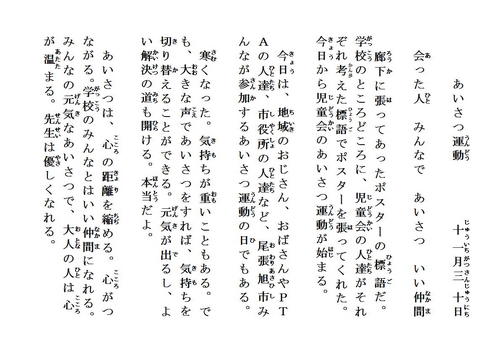 あいさつ運動　十一月三十日
会った人　みんなで　あいさつ　いい仲間
廊下に張ってあったポスターの標語だ。
学校のところどころに、児童会の人達がそれ
ぞれ考えた標語でポスターを張ってくれた。
今日から児童会のあいさつ運動が始まる。
今日は、地域のおじさん、おばさんやＰＴ
Ａの人達、市役所の人達など、尾張旭市み
んなが参加するあいさつ運動の日でもある。
寒くなった。気持ちが重いこともある。で
も、大きな声であいさつをすれば、気持ちを
切り替えることができる。元気が出るし、よ
い解決の道も開ける。本当だよ。
あいさつは、心の距離を縮める。心がつ
ながる。学校のみんなとはいい仲間になれる。
みんなの元気なあいさつで、大人の人は心
が温まる。先生は優しくなれる。